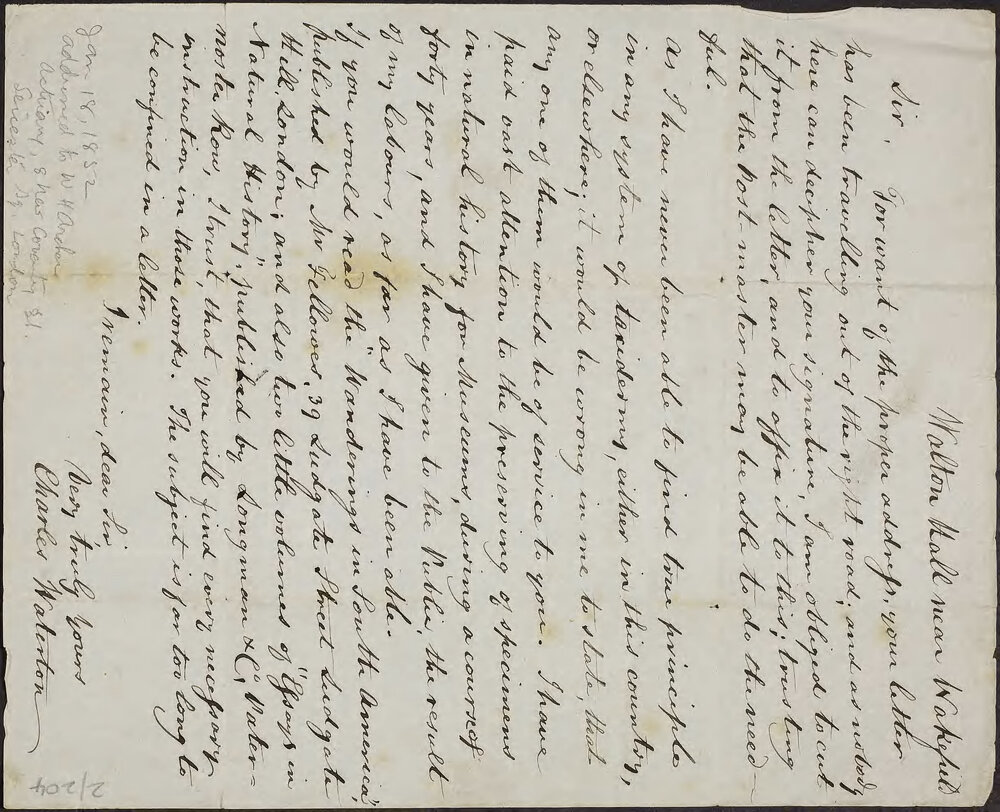 Walton Hall near Wakefield
Sir, For want of the proper address, your letter
has been travelling out of the right road; and as nobody
here can decipher your signature, I am obliged to cut
it from the letter, and to affix it to this; trusting
that the Post-master may be able to do the need-
ful.
As I have never been able to find true principle
in any system of taxidermy, either in this country,
or elsewhere, it would be wrong in me to state, that
any one of them would be of service to you. I have
paid vast attention to the preserving of specimens
in natural history for Museums, during a course of
forty years, and I have given to the Public, the result
of my labours, as far as I have been able.
If you would read the "Wanderings in South America,"
published by Mr Fellowes, 39 Ludgate Street Ludgate
Hill, London; and also two little volumes of "Essays in
Natural History", published by Longman & Co, Pater-
noster Row, I trust, that you will find every necessary
instruction in those works. The subject is far too long to
be confined in a letter.
I remain, dear Sir
Very truly yours
Charles Waterton
Jan. 18, 1852
addressed to W H
8 New Coventry St.
Leicester Sq. London
2/204